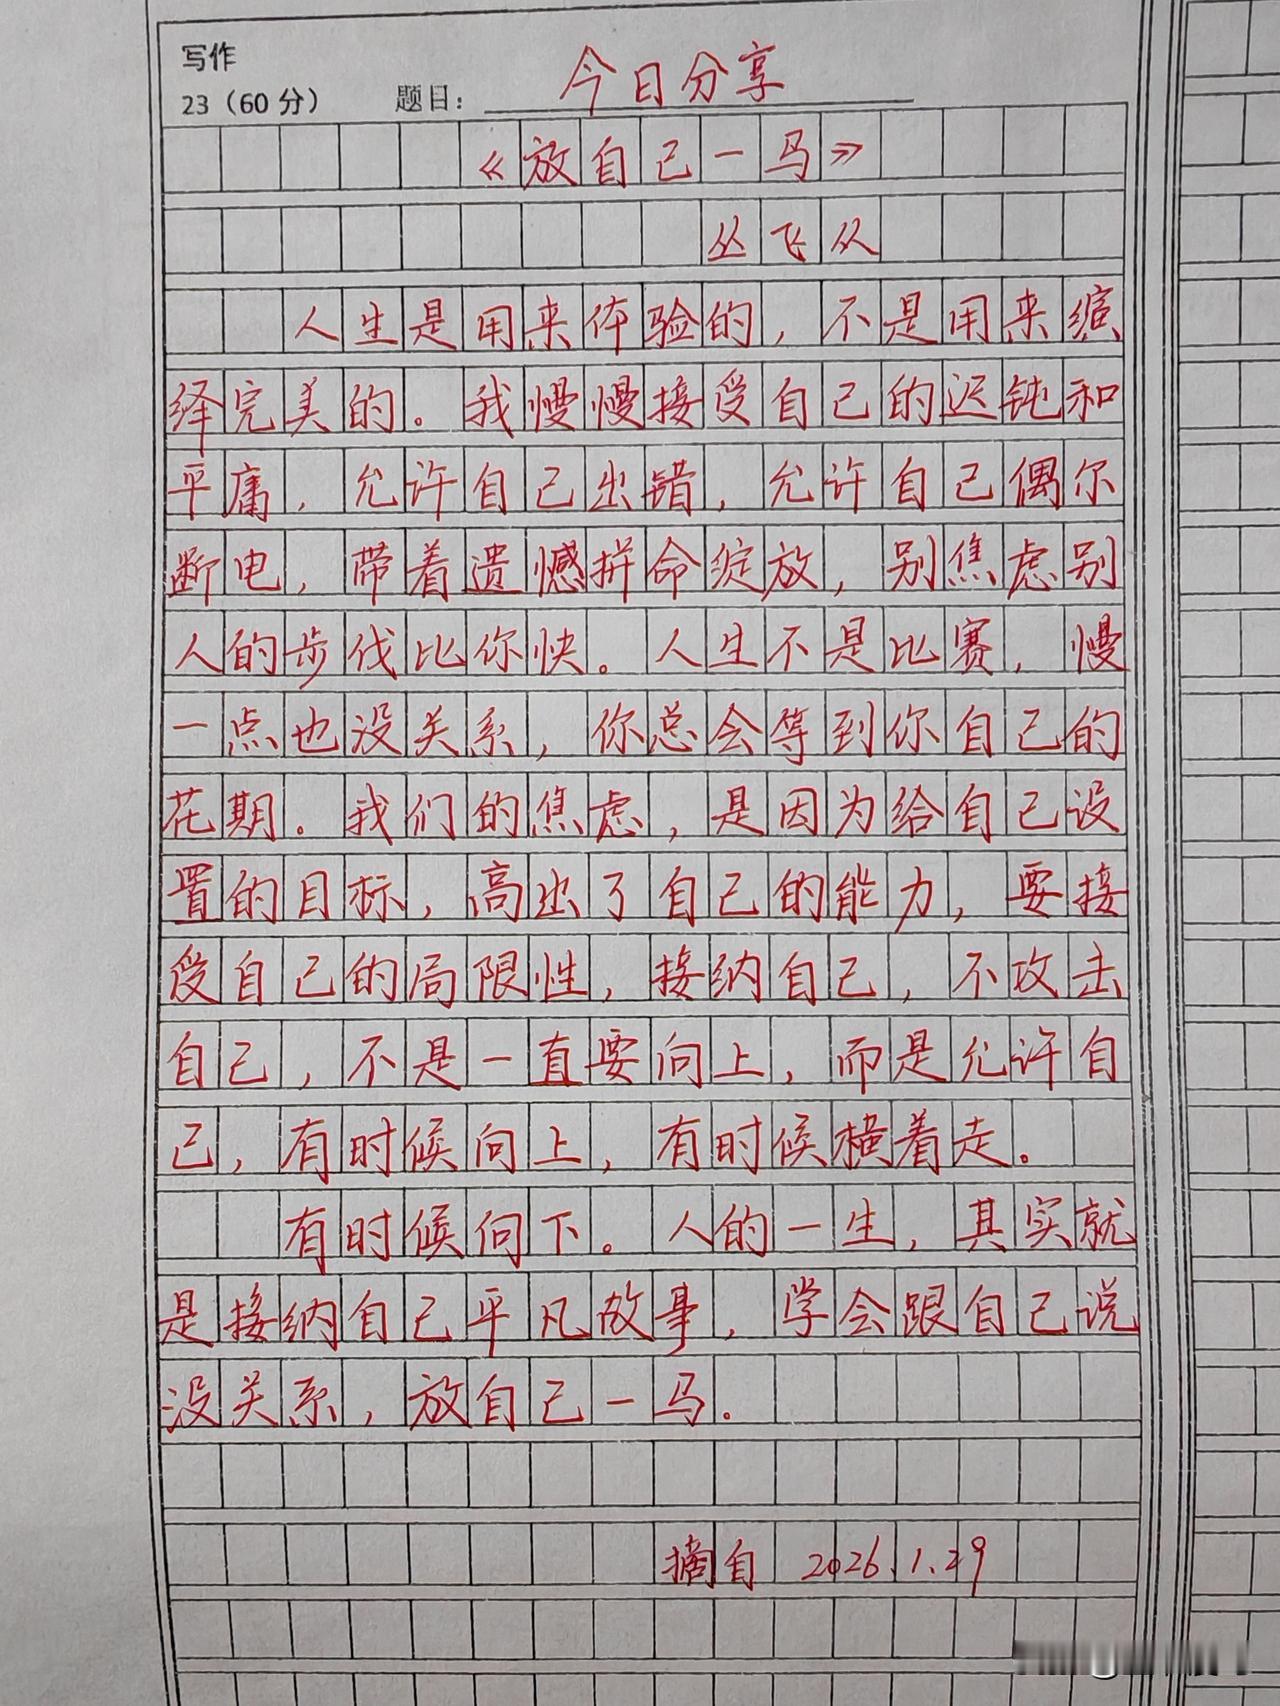 写作
23（60 分） 题目： 今日分享
《放自己一马》
丛飞从
人生是用来体验的，不是用来演
绎完美的。我慢慢接受自己的迟钝和
平庸，允许自己出错，允许自己偶尔
断电，带着遗憾拼命绽放，别焦虑别
人的步伐比你快。人生不是比赛，慢
一点也没关系，你总会等到你自己的
花期。我们的焦虑，是因为给自己设
置的目标，高出了自己的能力，要接
受自己的局限性，接纳自己，不攻击
自己，不是一直要向上，而是允许自
己，有时候向上，有时候横着走。
有时候向下。人的一生，其实就
是接纳自己平凡故事，学会跟自己说
没关系，放自己一马。
摘自 2026.1.29